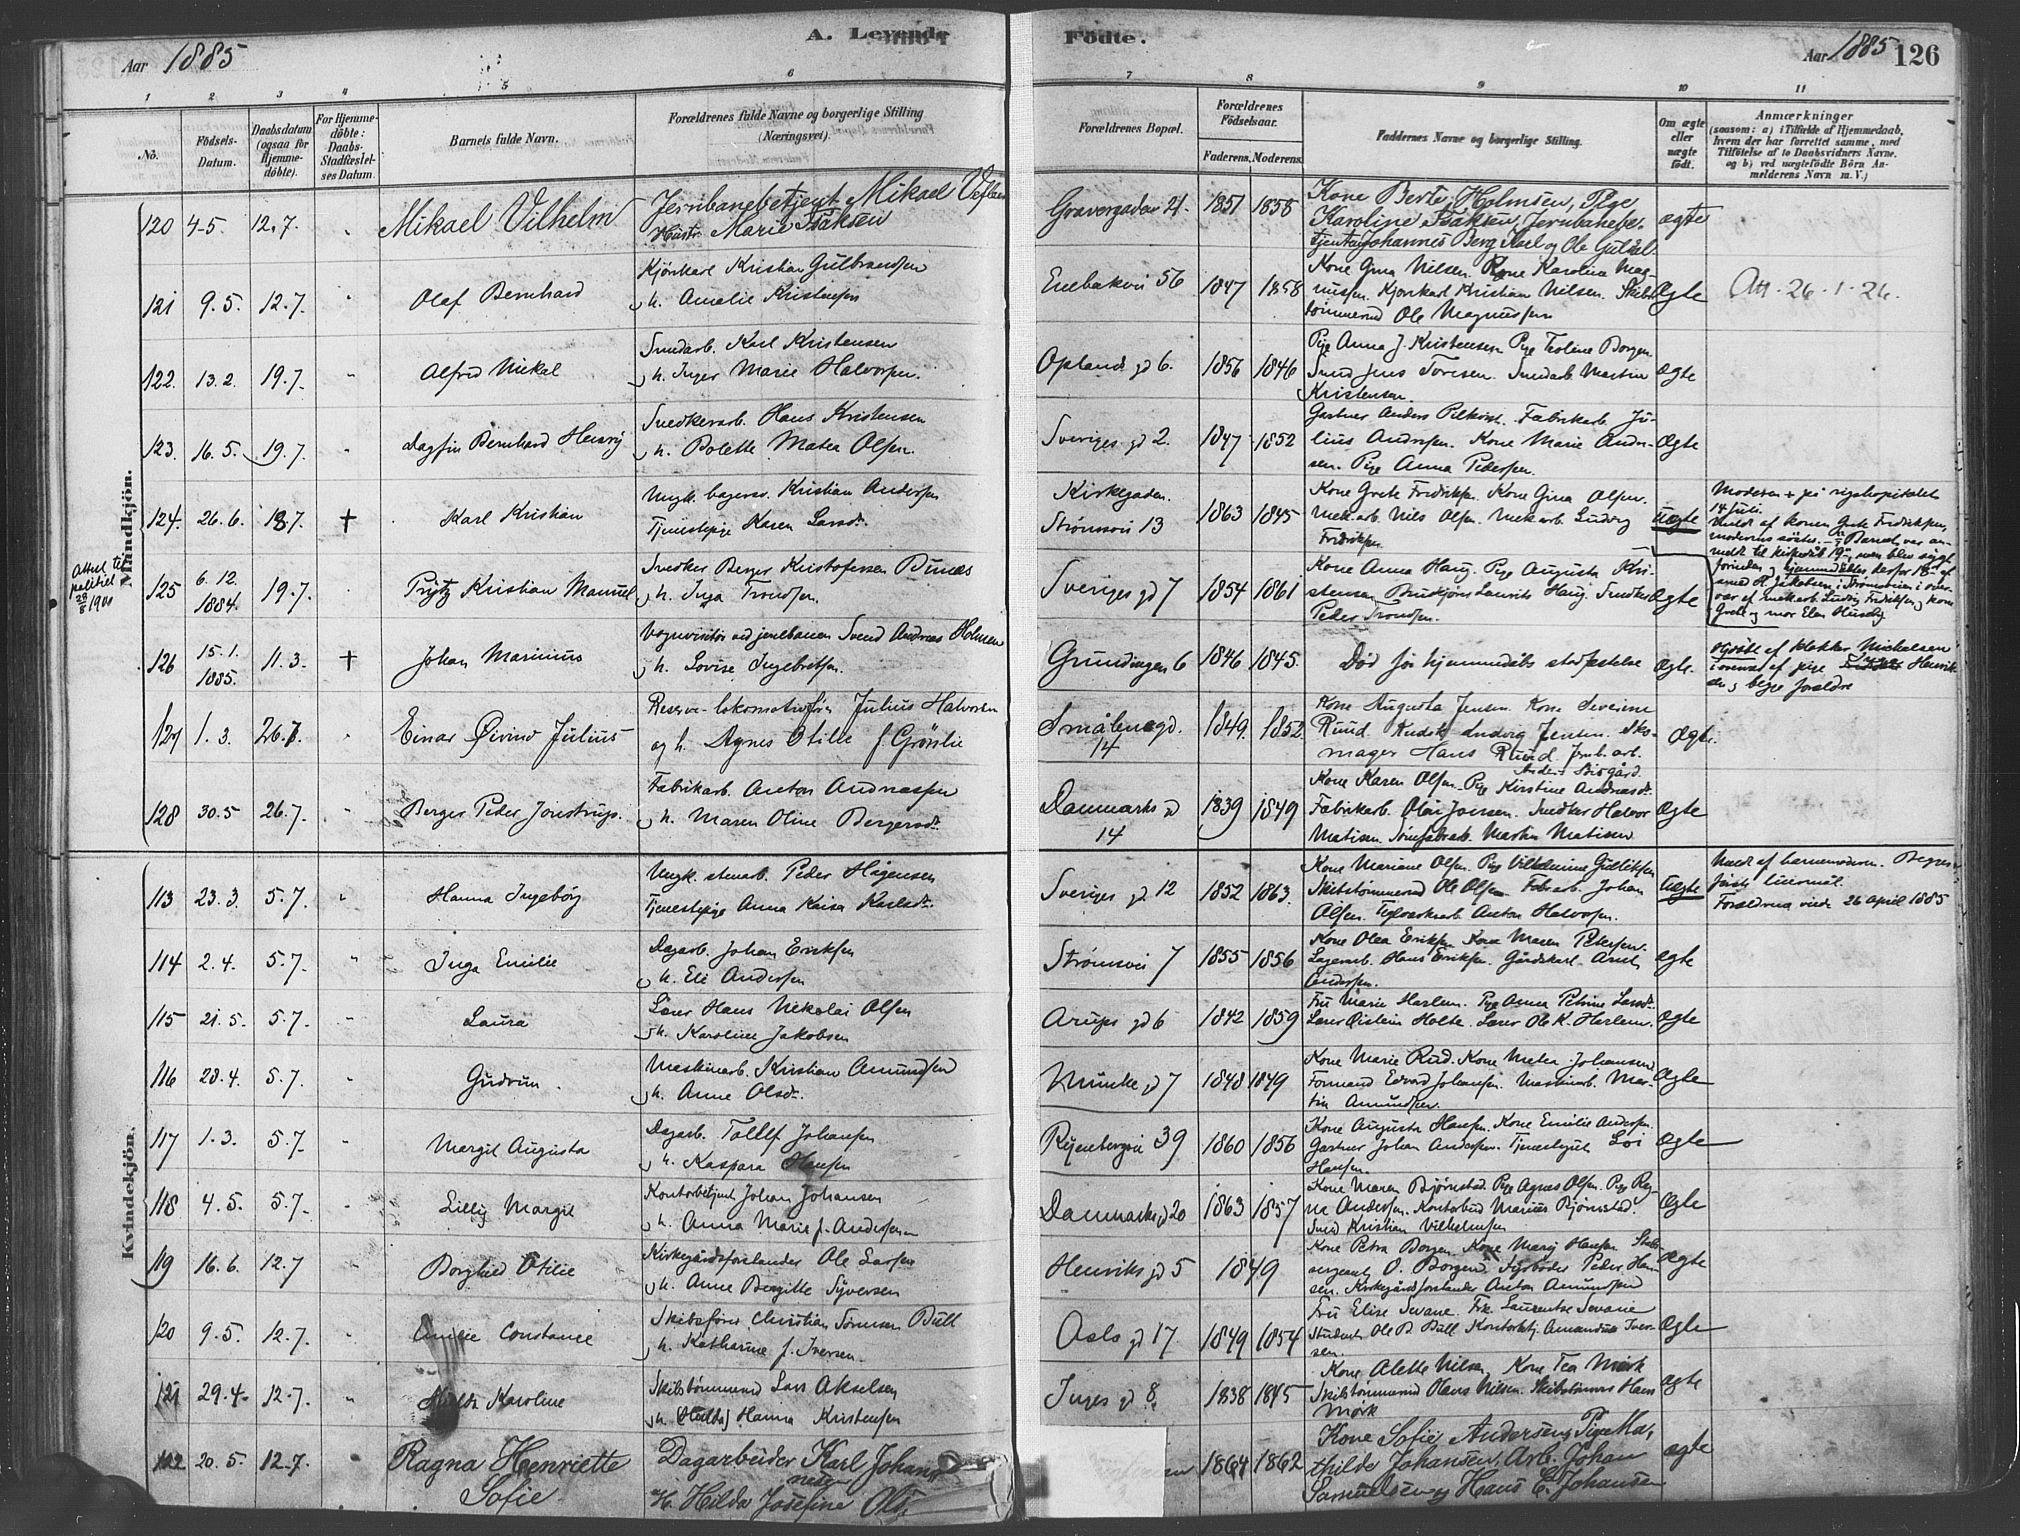 Aar 1885
A. Levende
Födte.
Aar 1885
126
1 2 3 4 5 6 7 8 9 10 11
No.
Födsels-
Datum.
Daabsdatum
(ogsaa for
Hjemme-
döbte).
For Hjemme-
döbte:
Daabs-
Stadfæstel-
ses Datum.
Barnets fulde Navn.
Forældrenes fulde Navne og borgerlige Stilling
(Næringsvei).
Forældrenes Bopæl.
Forældrenes
Födselsaar.
Faderens. Moderens.
Faddernes Navne og borgerlige Stilling.
Om ægte
eller
uægte
födt.
Anmærkninger
(saasom: a) i Tilfælde af Hjemmedaab,
hvem der har forrettet samme, med
Tilföielse af to Daabsvidners Navne.
og b) ved uægtefödte Börn An-
melderens Navn m. V.)
Mandkjön.
120 4-5 12.7. Mikael Vilhelm
Jernbanebetjent Mikael
Hustr. Marie Isaksen
Gravergaden 21. 1851 1858
Kone Berte Holmsen, Pige
Karoline Isaksen, Jernbanebe-
tjenten Johannes Berg
ægte
121 9.5. 12.7. Olaf Bernhard
Kjørekarl Kristian Gulbrandsen
h. Amalie Kristensen
Enebakvei 56 1847 1858
Kone Gina Nilsen. Kone Karolina Mag-
nussen. Kjørekarl Kristian Nilsen. Skibs-
tømmermd Ole Magnussen
Ægte
Att. 26-1-26.
122. 13.2. 19.7. Alfred Mikal
Smedarb. Karl Kristensen
h. Inger Marie Halvorsen.
Oplands gd 6. 1856 1846
Pige Anna J. Kristensen Pige Teoline Borgen
Smed Jens Toresen. Smedarb. Martin
Kristensen.
Ægte
123. 16.5. 19.7. Dagfin Bernhard Henry
Snedkerarb. Hans Kristensen
h. Bolette Matea Olsen.
Sveriges gd 2. 1847 1852
Gartner Anders Fabrikarb. Ju-
lius Andersen. Kone Marie Ander-
sen. Pige Anna Pedersen.
Ægte
124. 26.6. 18.7 + Karl Kristian
Ungk. bagersv. Kristian Andersen
Tjenestepige Karen Larsdr.
Kirkegaden.
Strømsvei 13 1863 1845
Kone Grete Fredriksen. Kone Gina Olsen.
Mek.arb. Nils Olsen. Mek.arb. Ludvig
Fredriksen
Uægte
Moderen + på rigshospitalet
14 juli.
Meldt af konen Grete Fredriksen,
moderens søster. Barnet var an-
meldt til kirkedåb 19., men blev sygt
forinden og hjemmedøbtes derfor 18. af
smed H. Jakobsen, Strømsveien i over-
vær af mek.arb. Ludvig Fredriksen, kone
Grete og mor Elen Huseby
Attest til
politiet
28/8 1900
125 6.12. 1884. 19.7. Prytz Kristian Manuel
Snedker Berger Kristofersen Bunes
h. Inga Trondsen.
Sveriges gd 7 1854 1861
Kone Anna Haug. Pige Augusta Kri-
stensen Laurits Haug. Snedker
Peder Trondsen.
Ægte
126 15.1. 1885. 11.3. + Johan Marinius
Vognvisitør ved jernbanen Svend Andreas Holmen
h. Lovise Ingebretsen.
Grundingen 6 1846 1845.
Død før hjemmedåbs stadfæstelse
Ægte.
Hjdøbt af klokker Michelsen
i overvær af pige Henrik-
sen og begge forældre
127 1.3. 26.7. Einar Øivind Julius
Reserve-lokomotivfører Julius Halvorsen
og h. Agnes Otilie f. Grønlie
Smålensgd.
14 1849. 1852
Kone Augusta Jensen. Kone Severine
Ruud. Kudsk Ludvig Jensen. Sko-
mager Hans Ruud.
Ægte.
128 30.5 26.7. Berger Peder Jonstrups.
Fabrikarb. Anton Andreassen
h. Maren Oline Bergersdr.
Danmarks gd
14 1839 1849
Kone Karen Olsen. Pige Kirstine Andreasdr.
Fabrikarb. Olai Jansen. Snedker Halvor
Matisen. Martin Matisen.
Ægte
Kvindekjön.
113 23.3. 5.7. Hanna Ingeborg
Ungk. stenarb. Peder Hågensen
Tjenestepige Anna Kaisa Karlsdr.
Sveriges gd. 12 1852 1863.
Kone Mariane Olsen. Pige Vilhelmine Gulliksen
Skibstømmermd Ole Olsen Fabr.arb. Johan
Olsen. Teglverksarb. Anton Halvorsen.
Uægte
Meldt af barnemoderen. Begges
første leiermål.
Forældrene viede 26 april 1885
114 2.4. 5.7. Inga Emilie
Dagarb. Johan Eriksen
h. Eli Andersen
Strømsvei 7 1855 1856
Kone Olea Eriksen Kone Maren Petersen.
Lagerarb. Hans Eriksen. Gårdskarl Arnt
Andersen.
Ægte
115 21.5. 5.7. Laura
Lærer Hans Nikolai Olsen
h. Karoline Jakobsen
Arups gd 6 1842 1859
Fru Marie Harlem. Pige Anna Petrine Larsdr.
Lærer Øistein Holte. Lærer Ole K. Harlem.
Ægte
116 28.4. 5.7. Gudrun.
Maskinarb. Kristian Amundsen
h. Anne Olsdr.
Munke gd 7 1848 1849
Kone Marie Rud. Kone Matea Johansen
Formand Edvard Johansen. Maskinarb. Mar-
tin Amundsen.
Ægte
117 1.3. 5.7. Margit Augusta
Dagarb. Tollef Johansen
h. Kaspara Hansen
Ryenbergvei 39 1860 1856
Kone Augusta Hansen. Kone Emilie Andersen.
Gartner Johan Andersen. Tjenestegut
Hansen.
Ægte
118 4.5. 5.7. Lilly Margit
Kontorbetjent Johan Johansen
h. Anna Marie f. Andersen
Danmarks gd 20 1863 1857
Kone Maren Bjørnstad Pige Agnes Olsen. Pige Rag-
na Andersen. Kontorbud Marius Bjørnstad.
Smed Kristian Vilhelmsen
Ægte
119 16.6. 12.7 Borghild Otilie
Kirkegårdsforstander Ole Larsen
h. Anne Bergitte Syversen
Henriks gd 5 1849
Kone Petra Borgen. Kone Mary Hansen. Stabs-
sergeant O. Borgen. Fyrbøder Peder Han-
sen. Kirkegårdsforstander Anton Amundsen
Ægte
120 9.5. 12.7. Emilie Constance
Skibsfører Christian Sørensen Bull
h. Katharine f. Iversen.
Oslo gd 17. 1849 1854
Fru Elise Sevane. Frk. Laurentse Sevane
Student Ole B. Bull Kontorbetj. Amandus Iver-
sen.
Ægte
121 29.4. 12.7. Hulda Karoline
Skibstømmermd Lars Akselsen
h. (Hulda) Hanna Kristensen
Inges gd 8. 1838 1845
Kone Alette Nilsen, Kone Tea Mørk
Skibstømmermd Hans Nilsen. Skibstømrer Hans
Mørk
Ægte
122 20.5. 12.7. Ragna Henriette
Sofie
Dagarbeider Karl Johan-
nesen
H. Hilda Josefine Ols
1864 1862
Kone Sofie Andersen, Pige Ma-
thilde Johansen, Arb. Johan
Samuelsen og Hans C. Johansen
ægte